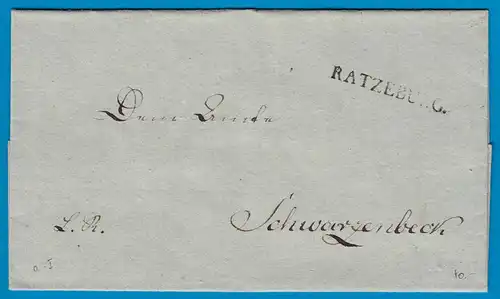 RATZEBURG.
Dem Amte
L. R.
Schwarzenbeck
a-I
10.-